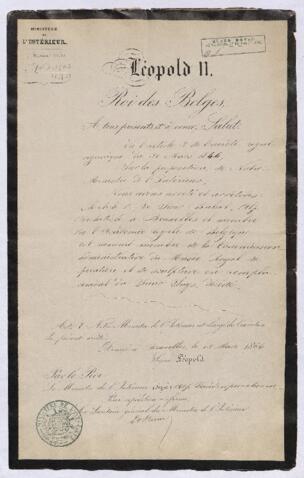 MINISTÈRE
DE
L'INTÉRIEUR.
Léopold II,
Roi des Belges,
A tous présents et à venir, Salut.
Vu l'article de l'arrêté royal
organique du 31 Mars
Sur la proposition de Notre
Ministre de l'Intérieur,
Nous avons arrêté et arrêtons:
Article 1. Le Sieur Balat, Alp.
architecte à Bruxelles et membre
de l'Académie royale de Belgique
est nommé membre de la Commission
administrative du Musée Royal de
peinture et de sculpture en remplacement
du Sieur décédé.
Art. 2. Notre Ministre de l'Intérieur est chargé de l'exécution
du présent arrêté.
Donné à Bruxelles, le Mars
Signé Léopold
Par le Roi:
Le Ministre de l'Intérieur, signé Alp. Vandenpeereboom
Pour expédition conforme:
Le Secrétaire général du Ministère de l'Intérieur